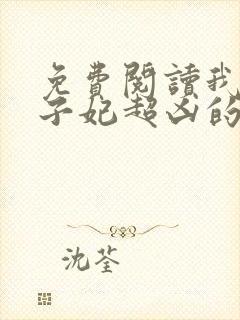 免費閱讀我
子妃超凶的
沈荃